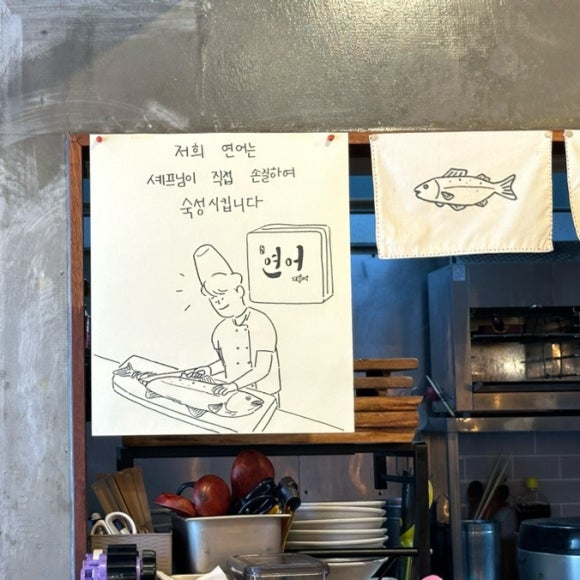 저희 연어는
셰프님이 직접 손질하여
숙성시킵니다
연어